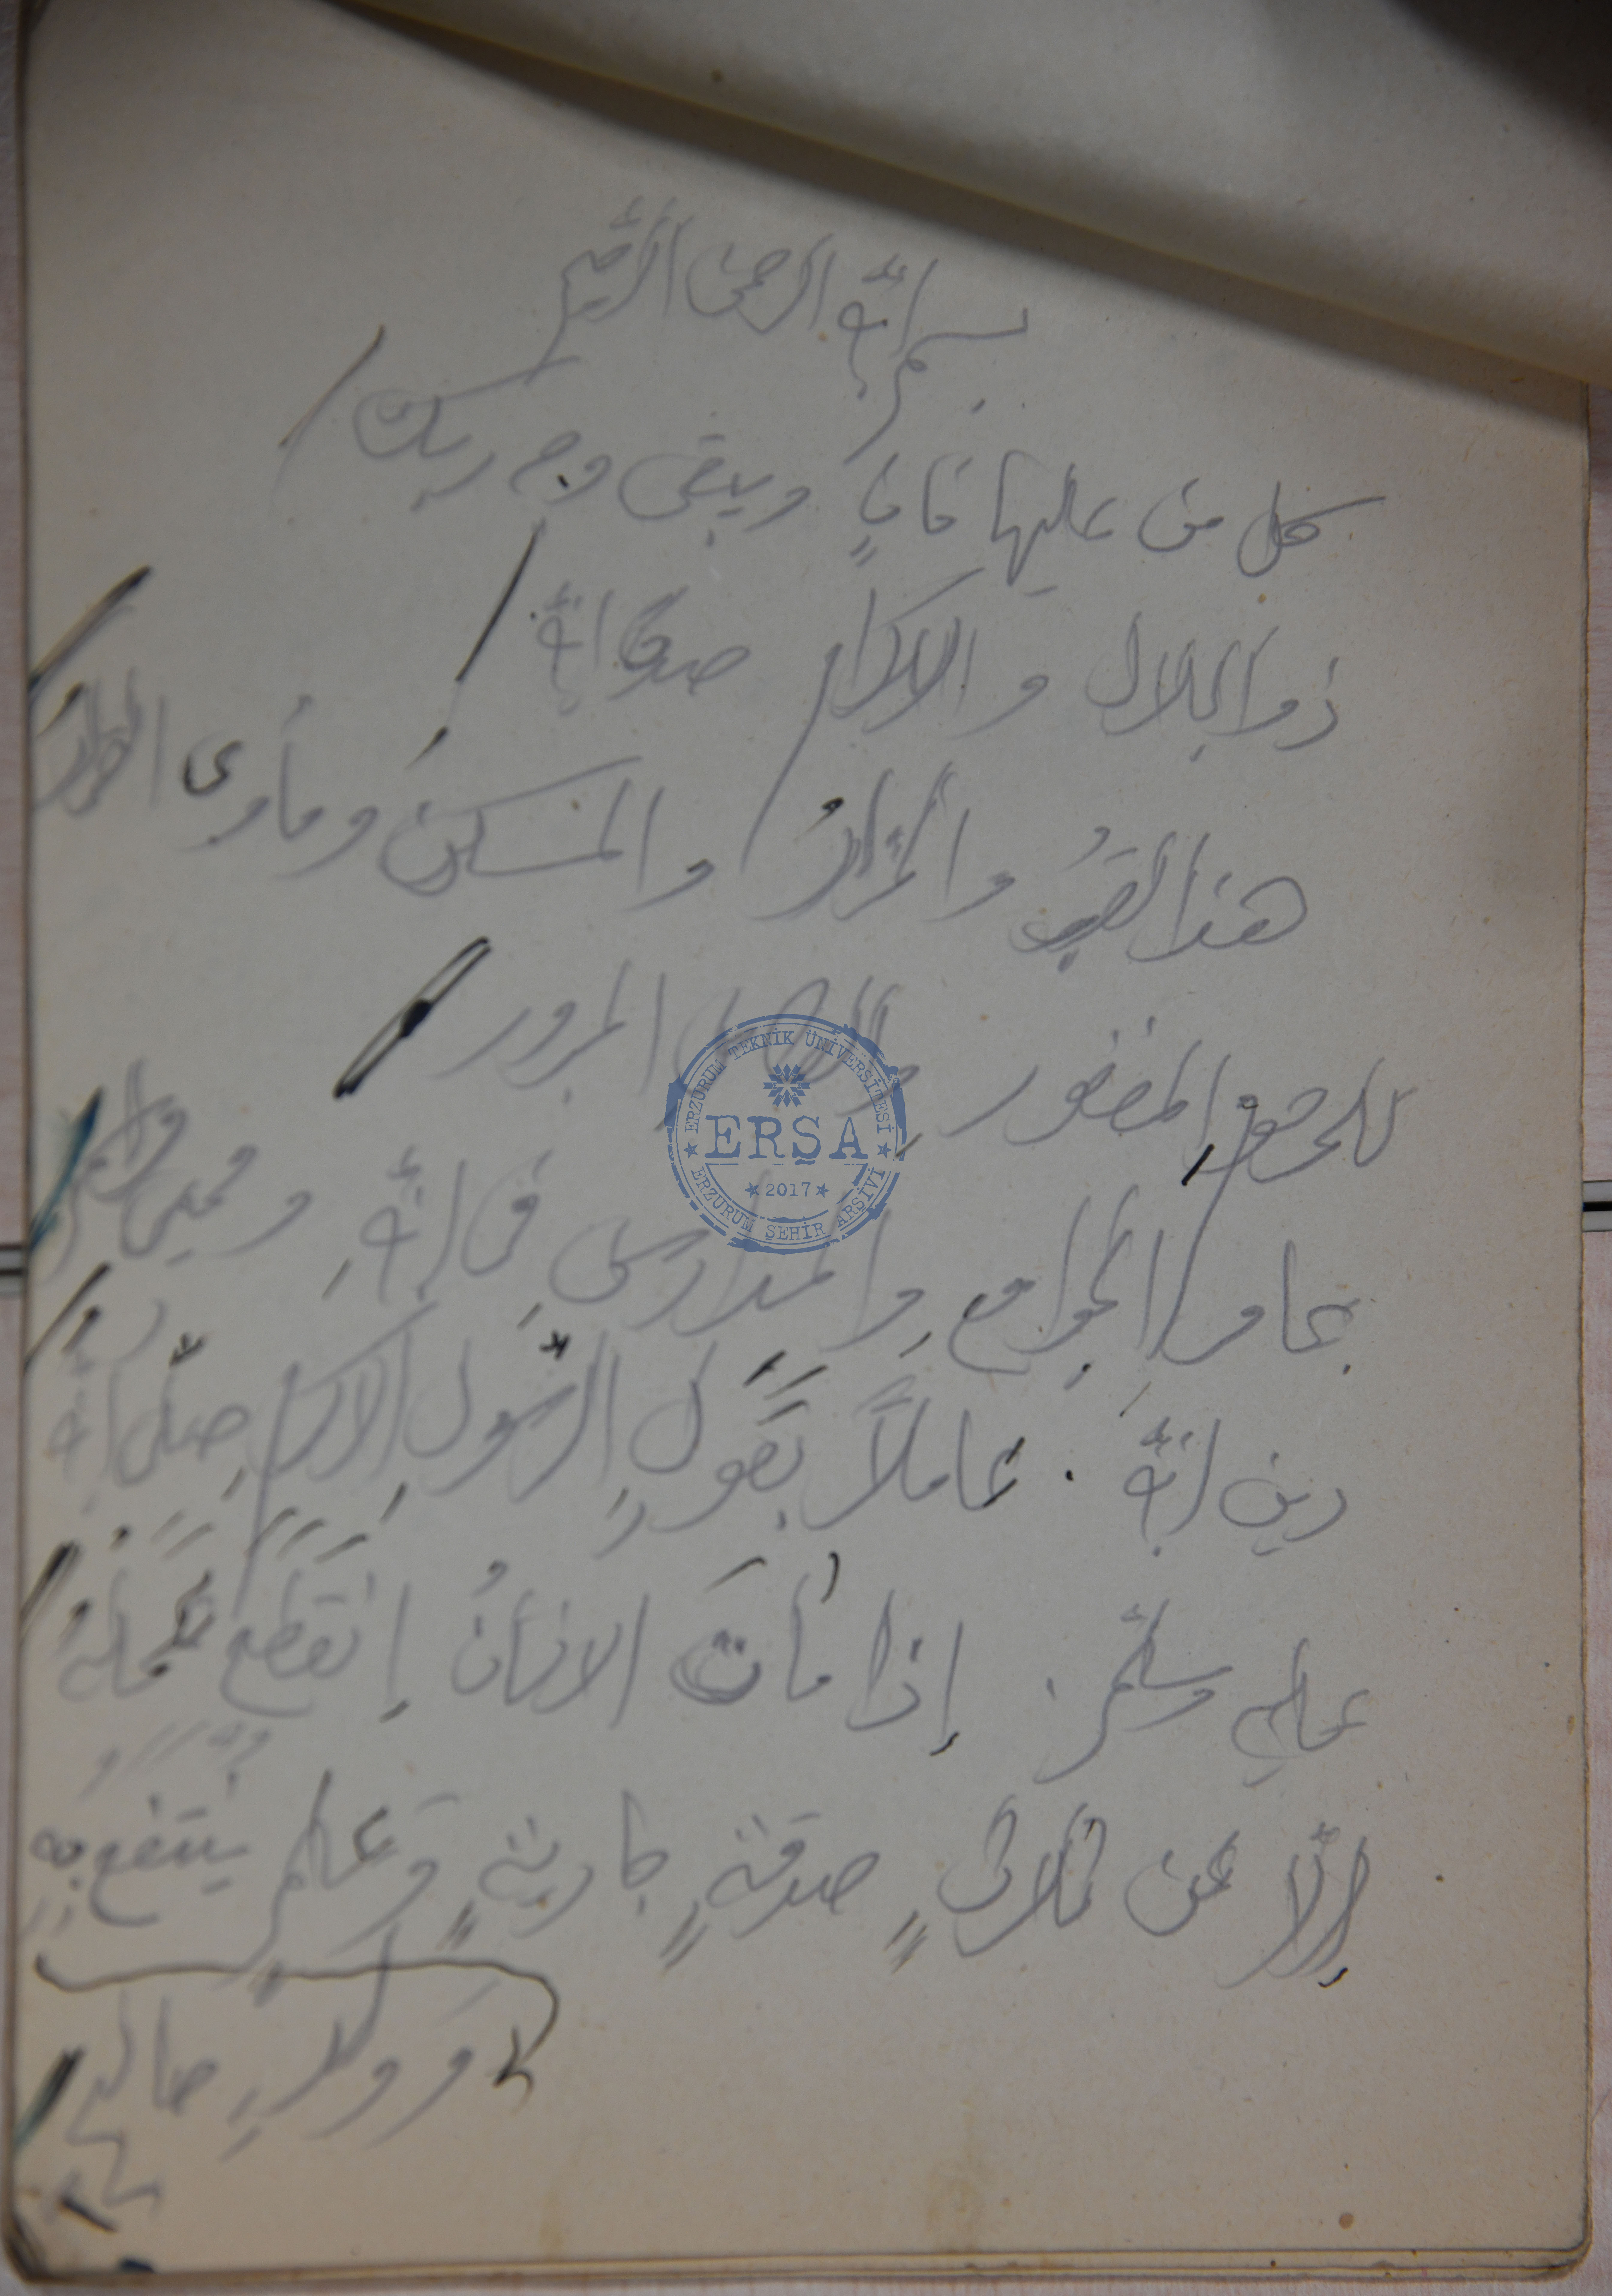 بسم الله الرحمن الرحيم
كل من عليها فانٍ ويبقى وجه ربك
ذوالجلال والاكرام صدق الله
هذا القبرُ والمزارُ والمسكن ومأوى
للمرحوم المغفور والحاجى المبرور
عامر الجوامع والمدارس فى الله ومحيى
دين الله . عاملاً بقول الرّسول الاكرم صلى الله
عليه وسلم . إذا مات الانسانُ إنقطع عمله
إلّا عن ثلاثٍ صدقةٍ جاريةٍ وعلمٍ ينتفع به
وولدٍ صالح
ERZURUM TEKNİK ÜNİVERSİTESİ
ERŞA
2017
ERZURUM ŞEHİR ARŞİVİ